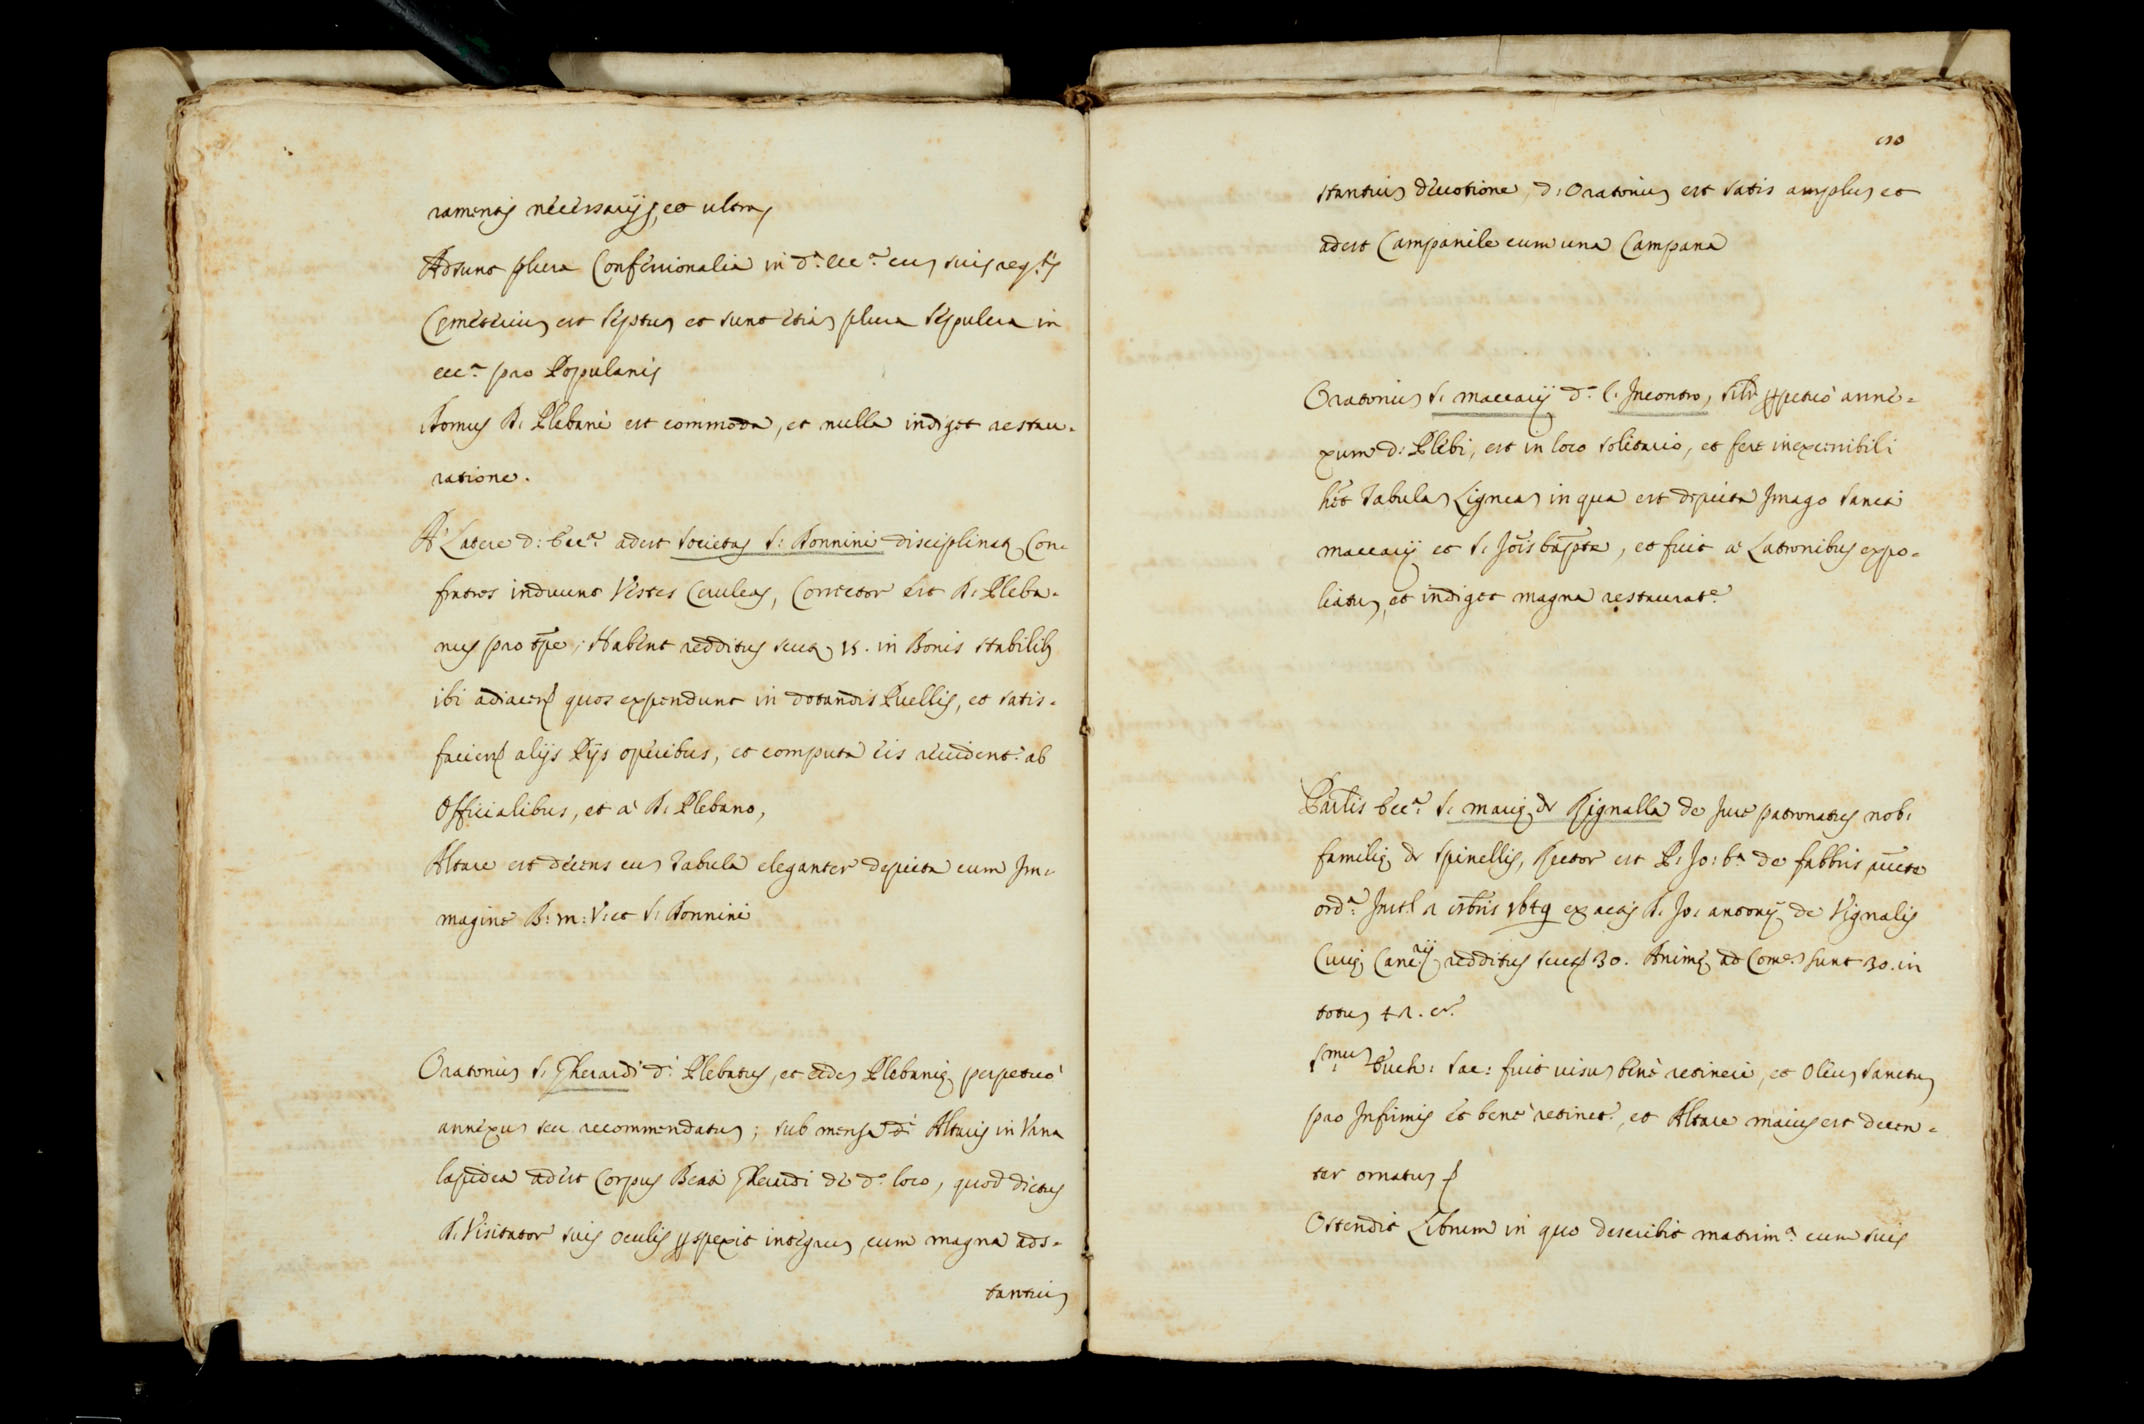 ramentis necessarijs, et ultra,
Adsunt plura Confessionalia in d.ª ecc.ª cum suis req.tis
Cemeterium est septum et sunt etiam plura sepulcra in
ecc.ª pro Popularis
Domus D. Plebani est commoda, et nulla indiget restau-
ratione.
A Latere d: Ecc.ª adest Societas S: Donnini disciplinatꝫ Con-
fratres induunt Vestes Ceruleas, Corrector est D. Pleba-
nus pro tpe; Habent redditus scutꝫ 15. in Bonis stabilibꝫ
ibi adiacen quos expendunt in dotandis Puellis, et satis-
facien alijs Pijs operibus, et computa eis revident.r ab
Officialibus, et à D. Plebano,
Altare est decens cum Tabula eleganter depicta cum Im-
magine B: M: V: et S. Donnini
Oratorium S. Gherardi d.i Plebatus, et eidem Plebaniæ perpetuò
annexum seu recommendatum; sub mensa d.i Altaris in Vrna
lapidea adest Corpus Beati Gherardi de d.o loco, quod dictus
D. Visitator suis oculis prospexit integrum, cum magna ads-
tantium
110
stantium devotione, d: Oratorium est satis amplum et
adest Campanile cum una Campana
Oratorium S. Maccarij d.º l'Incontro, silr ppetuò anne-
xum d: Plebi, est in loco solitario, et fere inexcessibili
het Tabulam Ligneam in qua est depicta Imago Sancti
Maccarij et S. Jois bapte, et fuit à Latronibus expo-
liatum, et indiget magna restaurat.e
Parlis Ecc.ª S. Mariæ de Rignalla de Jure patronatus nob.
familiæ de Spinellis, Rector est P. Jo: b.ª de fabbris
ord.ª 1649 ex actis D. Jo. Antonij de Vignalis
Curiæ Canc.rij redditus scut 30. Animæ ad Com. sunt 30. in
totum
S.mum Euch: Sac: fuit visum bene retineri, et Oleum Sanctum
pro Infirmis et bene retinet.r, et Altare maius est decen-
ter ornatum
Ostendit Librum in quo describit matrim.ª cum suis